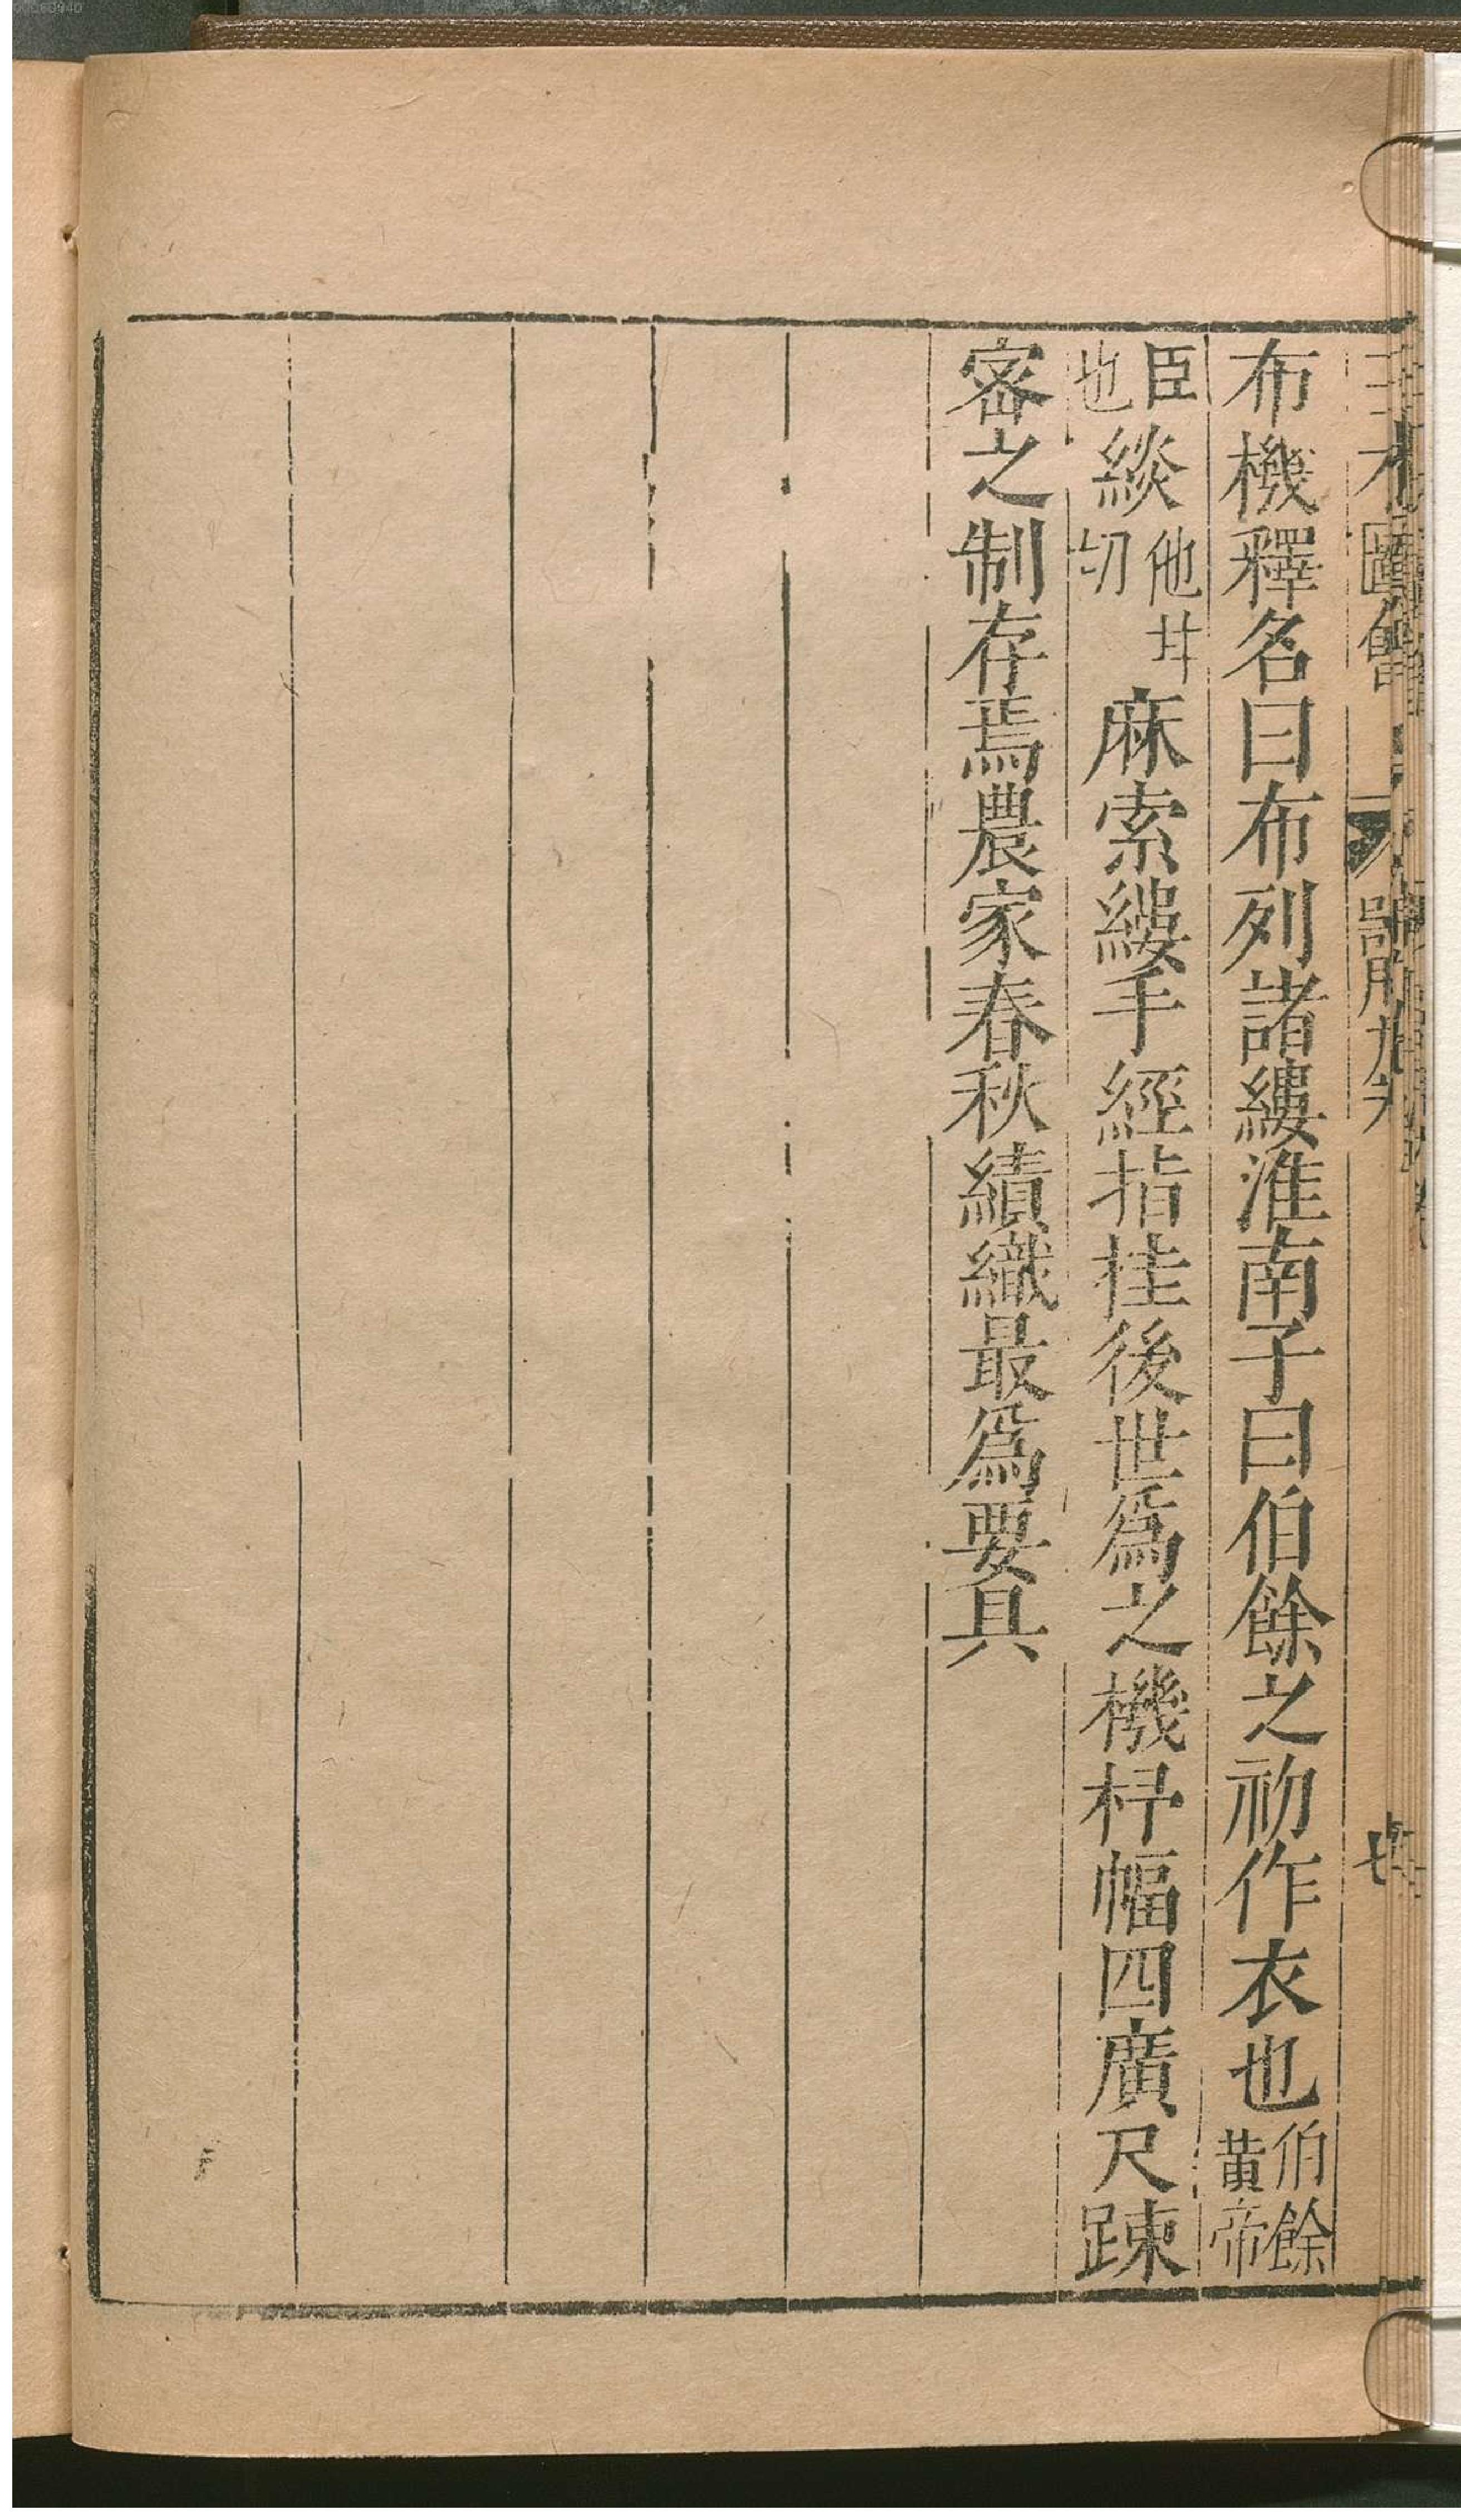 三才圖會 器用九卷 七
布機釋名曰布列諸縷淮南子曰伯餘之初作衣也伯餘黃帝
臣也緂他甘切麻索縷手經指挂後世爲之機杼幅四廣尺踈
宻之制存焉農家春秋績織最爲要具